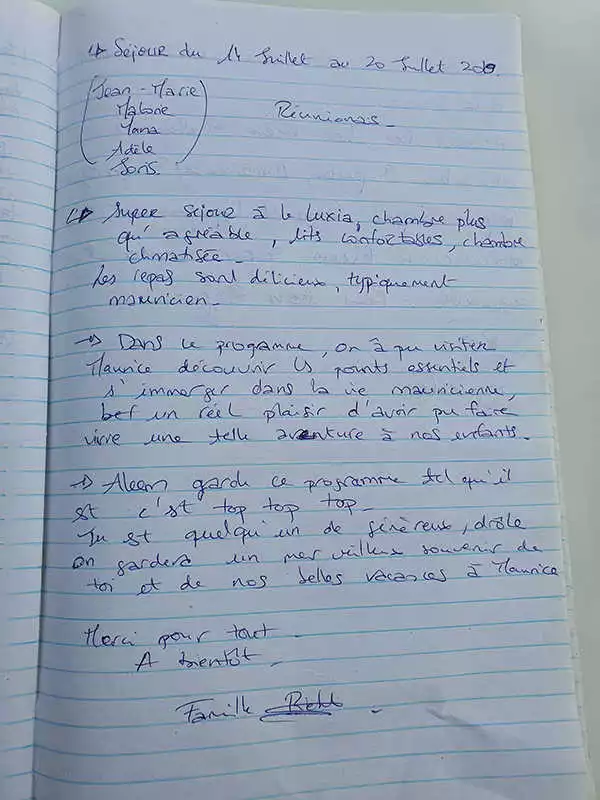 ↳ Séjour du 14 Juillet au 20 Juillet
Jean-Marie
Malorie
Réunionais.
Adèle
↳ Super séjour à le Luxia, chambre plus
qu'agréable, lits confortables, chambre
climatisée.
Les repas sont délicieux, typiquement
mauricien.
→ Dans le programme, on à pu visiter
Maurice découvrir ls points essentiels et
s'immerger dans la vie mauricienne,
bef un réel plaisir d'avoir pu faire
vivre une telle aventure à nos enfants.
→ Aleem garde ce programme tel qu'il
est c'est top top top.
Tu est quelqu'un de généreux, drôle
on gardera un merveilleux souvenir de
toi et de nos belles vacances à Maurice
Merci pour tout.
A bientôt.
Famille